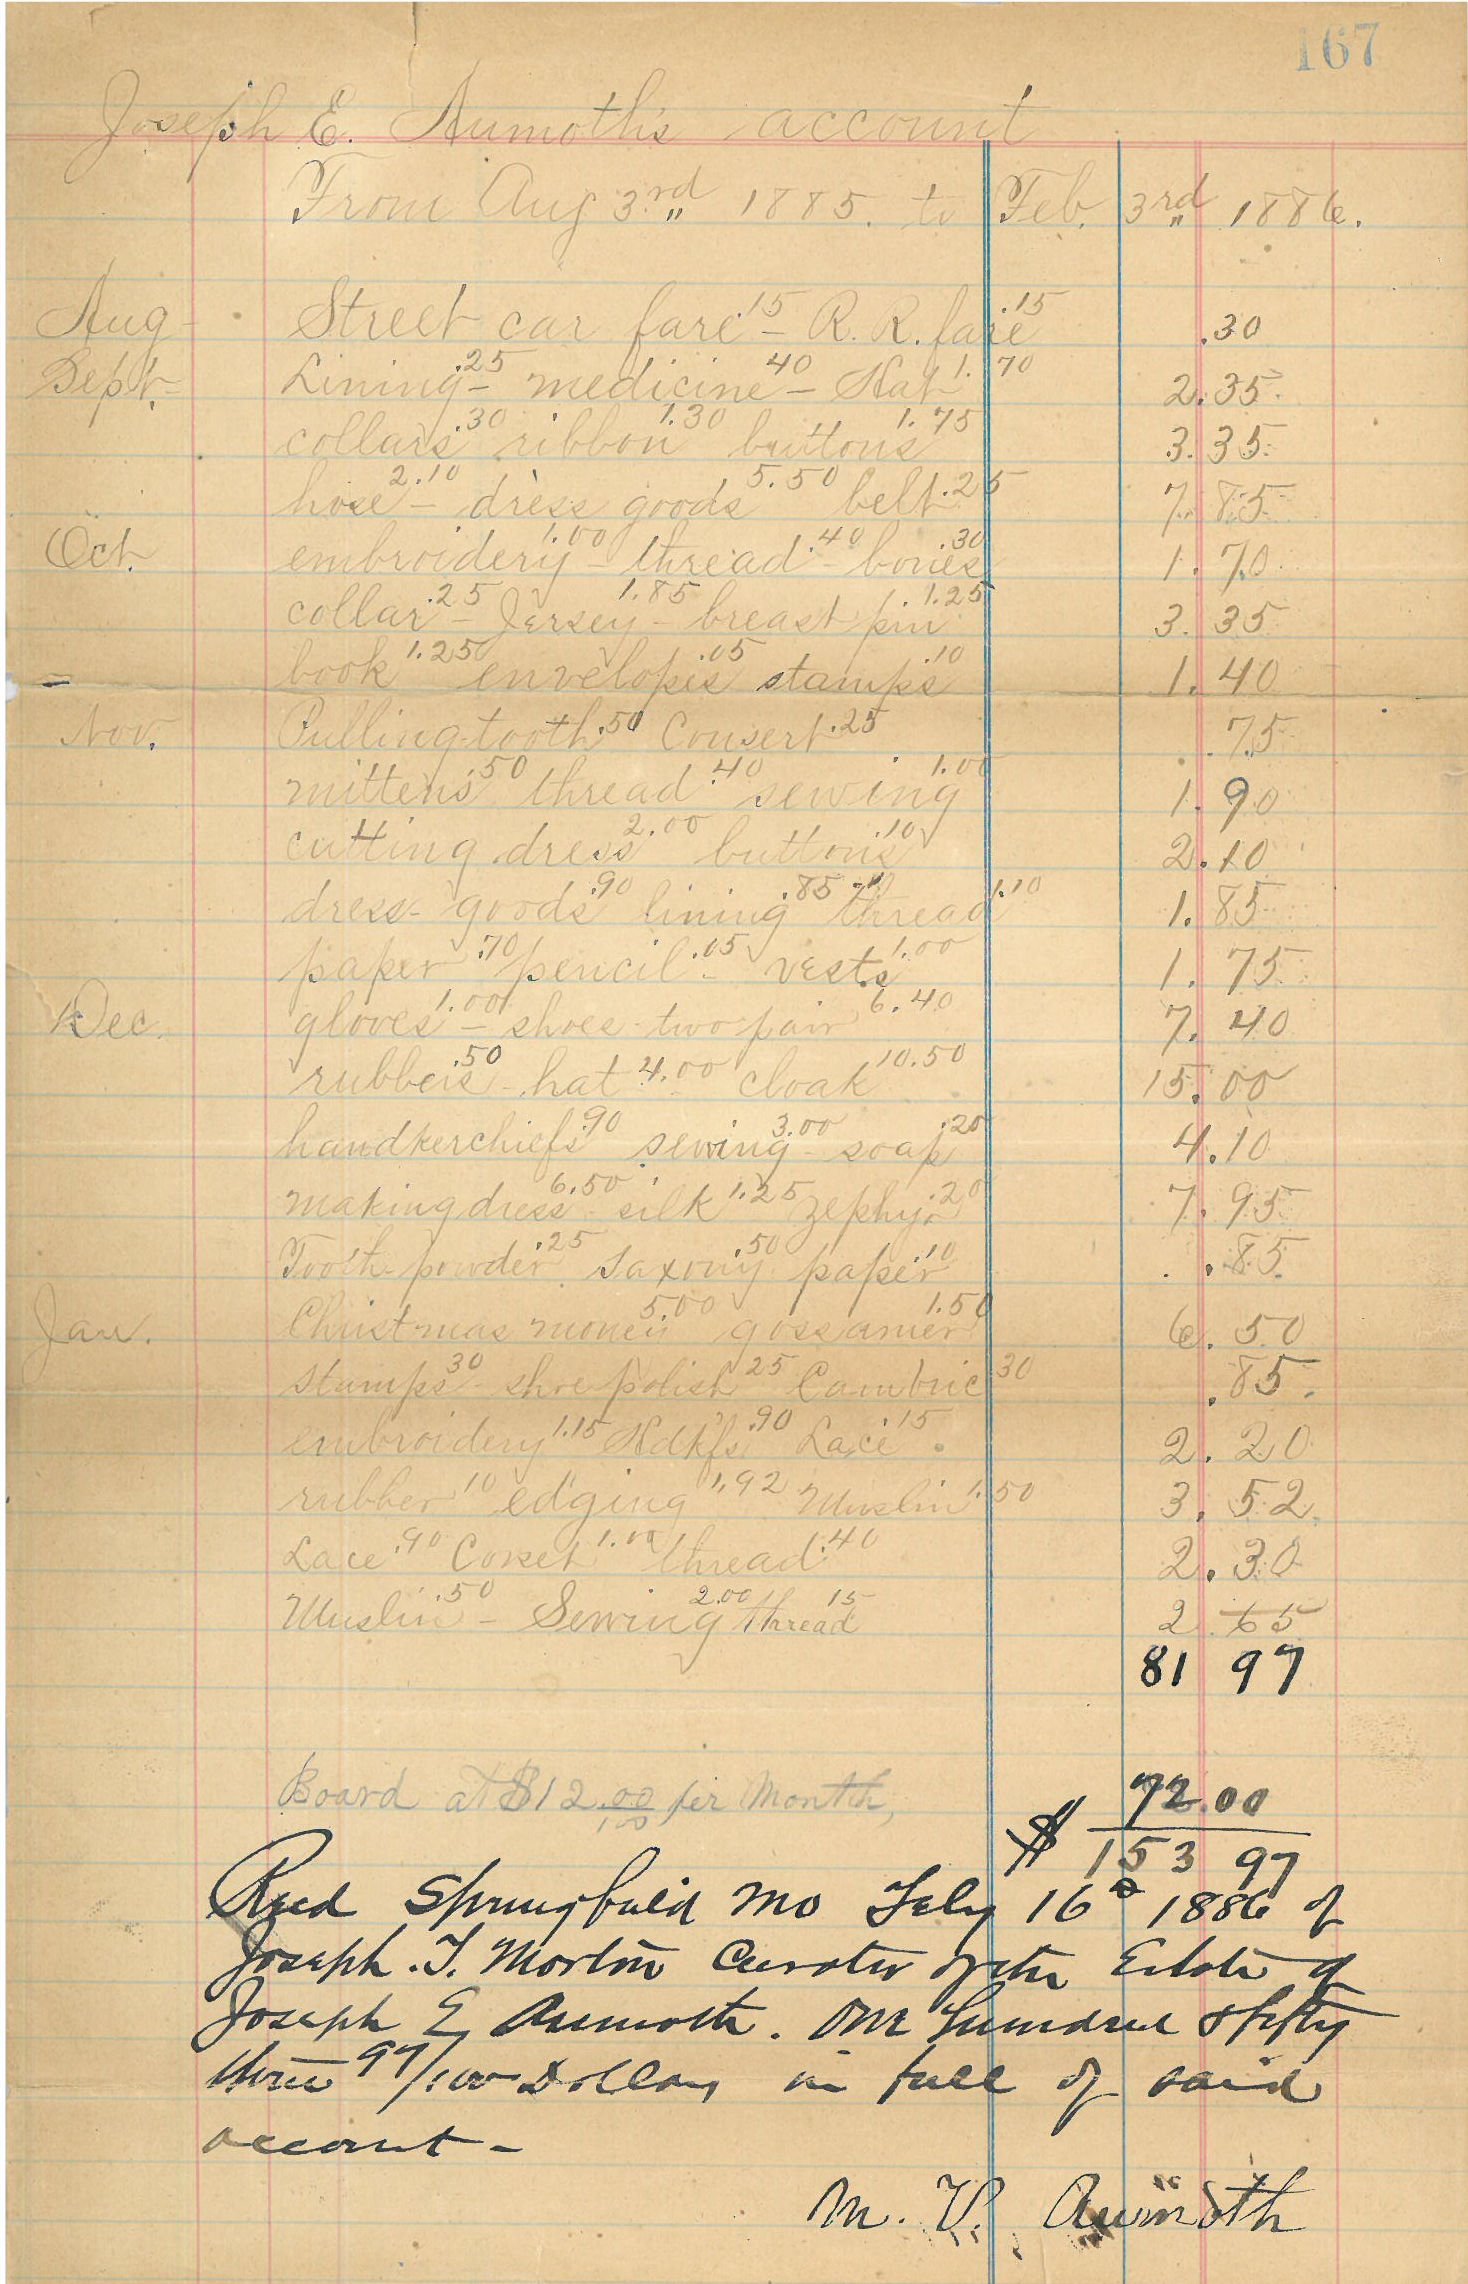 167
Joseph E. Aumoth's account
From Aug 3.rd 1885. to Feb. 3rd 1886.
Aug Street car fare .15 - R. R. fare .15 .30
Sept. Lining .25 - medicine .40 - Hat 1.70 2.35
collars .30 ribbon 1.30 buttons 1.75 3.35
hose 2.10 - dress goods 5.50 belt .25 7.85
Oct. embroidery 1.00 - thread .40 - bones .30 1.70
collar .25 - Jersey 1.85 - breast pin 1.25 3.35
book 1.25 envelopes .05 stamps .10 1.40
Nov. Pulling tooth .50 Consert .25 .75
mittens .50 thread .40 sewing 1.00 1.90
cutting dress 2.00 buttons .10 2.10
dress goods .90 lining .85 thread .10 1.85
paper .70 pencil .05 - vests 1.00 1.75
Dec. gloves 1.00 - shoes two pair 6.40 7.40
rubbers .50 - hat 4.00 cloak 10.50 15.00
handkerchiefs .90 sewing 3.00 - soap .20 4.10
making dress 6.50 - silk 1.25 zephyr .20 7.95
Tooth powder .25 Saxony .50 paper .10 .85
Jan. Christmas money 5.00 gossamer 1.50 6.50
stamps 30 - shoe polish 25 Cambric 30 .85
embroidery 1.15 Hdkfs .90 Lace 15 2.20
rubber 10 edging 1.92 Muslin 1.50 3.52
Lace .90 Corset 1.00 thread .40 2.30
Muslin .50 - Sewing 2.00 thread 15 2 65
81 97
Board at $12.00/100 per Month, 72.00
$ 153 97
Recd Springfield Mo Feby 16th 1886 of
Joseph. T. Morton Curator of the Estate of
Joseph E Aumoth. One Hundred & fifty
three 97/100 Dollars in full of said
account -
M. V. Aumoth